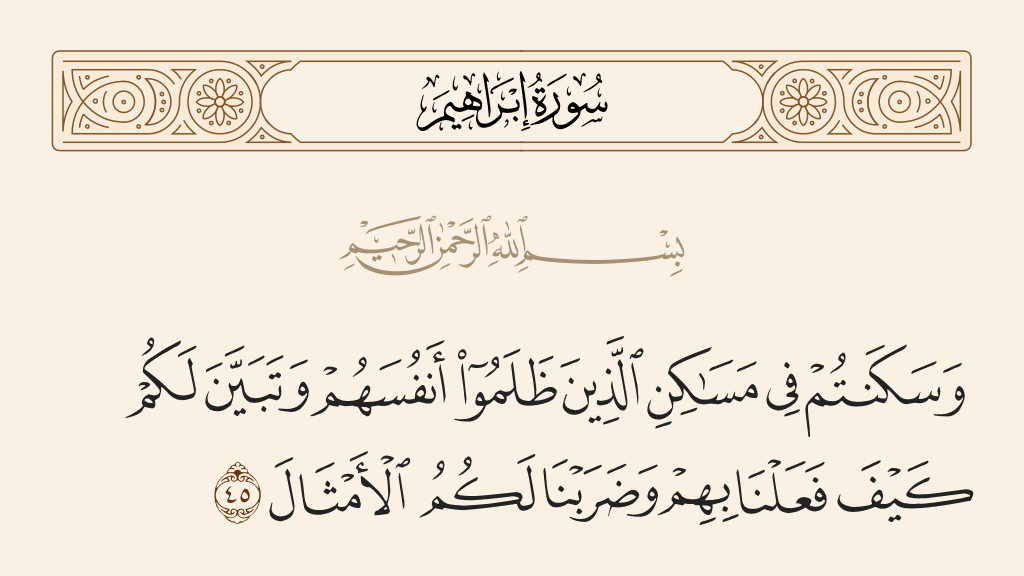 سُورَةُ إِبْرَاهِيمَ
بِسْمِ ٱللَّهِ ٱلرَّحْمَٰنِ ٱلرَّحِيمِ
وَسَكَنتُمْ فِى مَسَٰكِنِ ٱلَّذِينَ ظَلَمُوٓا۟ أَنفُسَهُمْ وَتَبَيَّنَ لَكُمْ
كَيْفَ فَعَلْنَا بِهِمْ وَضَرَبْنَا لَكُمُ ٱلْأَمْثَالَ ٤٥